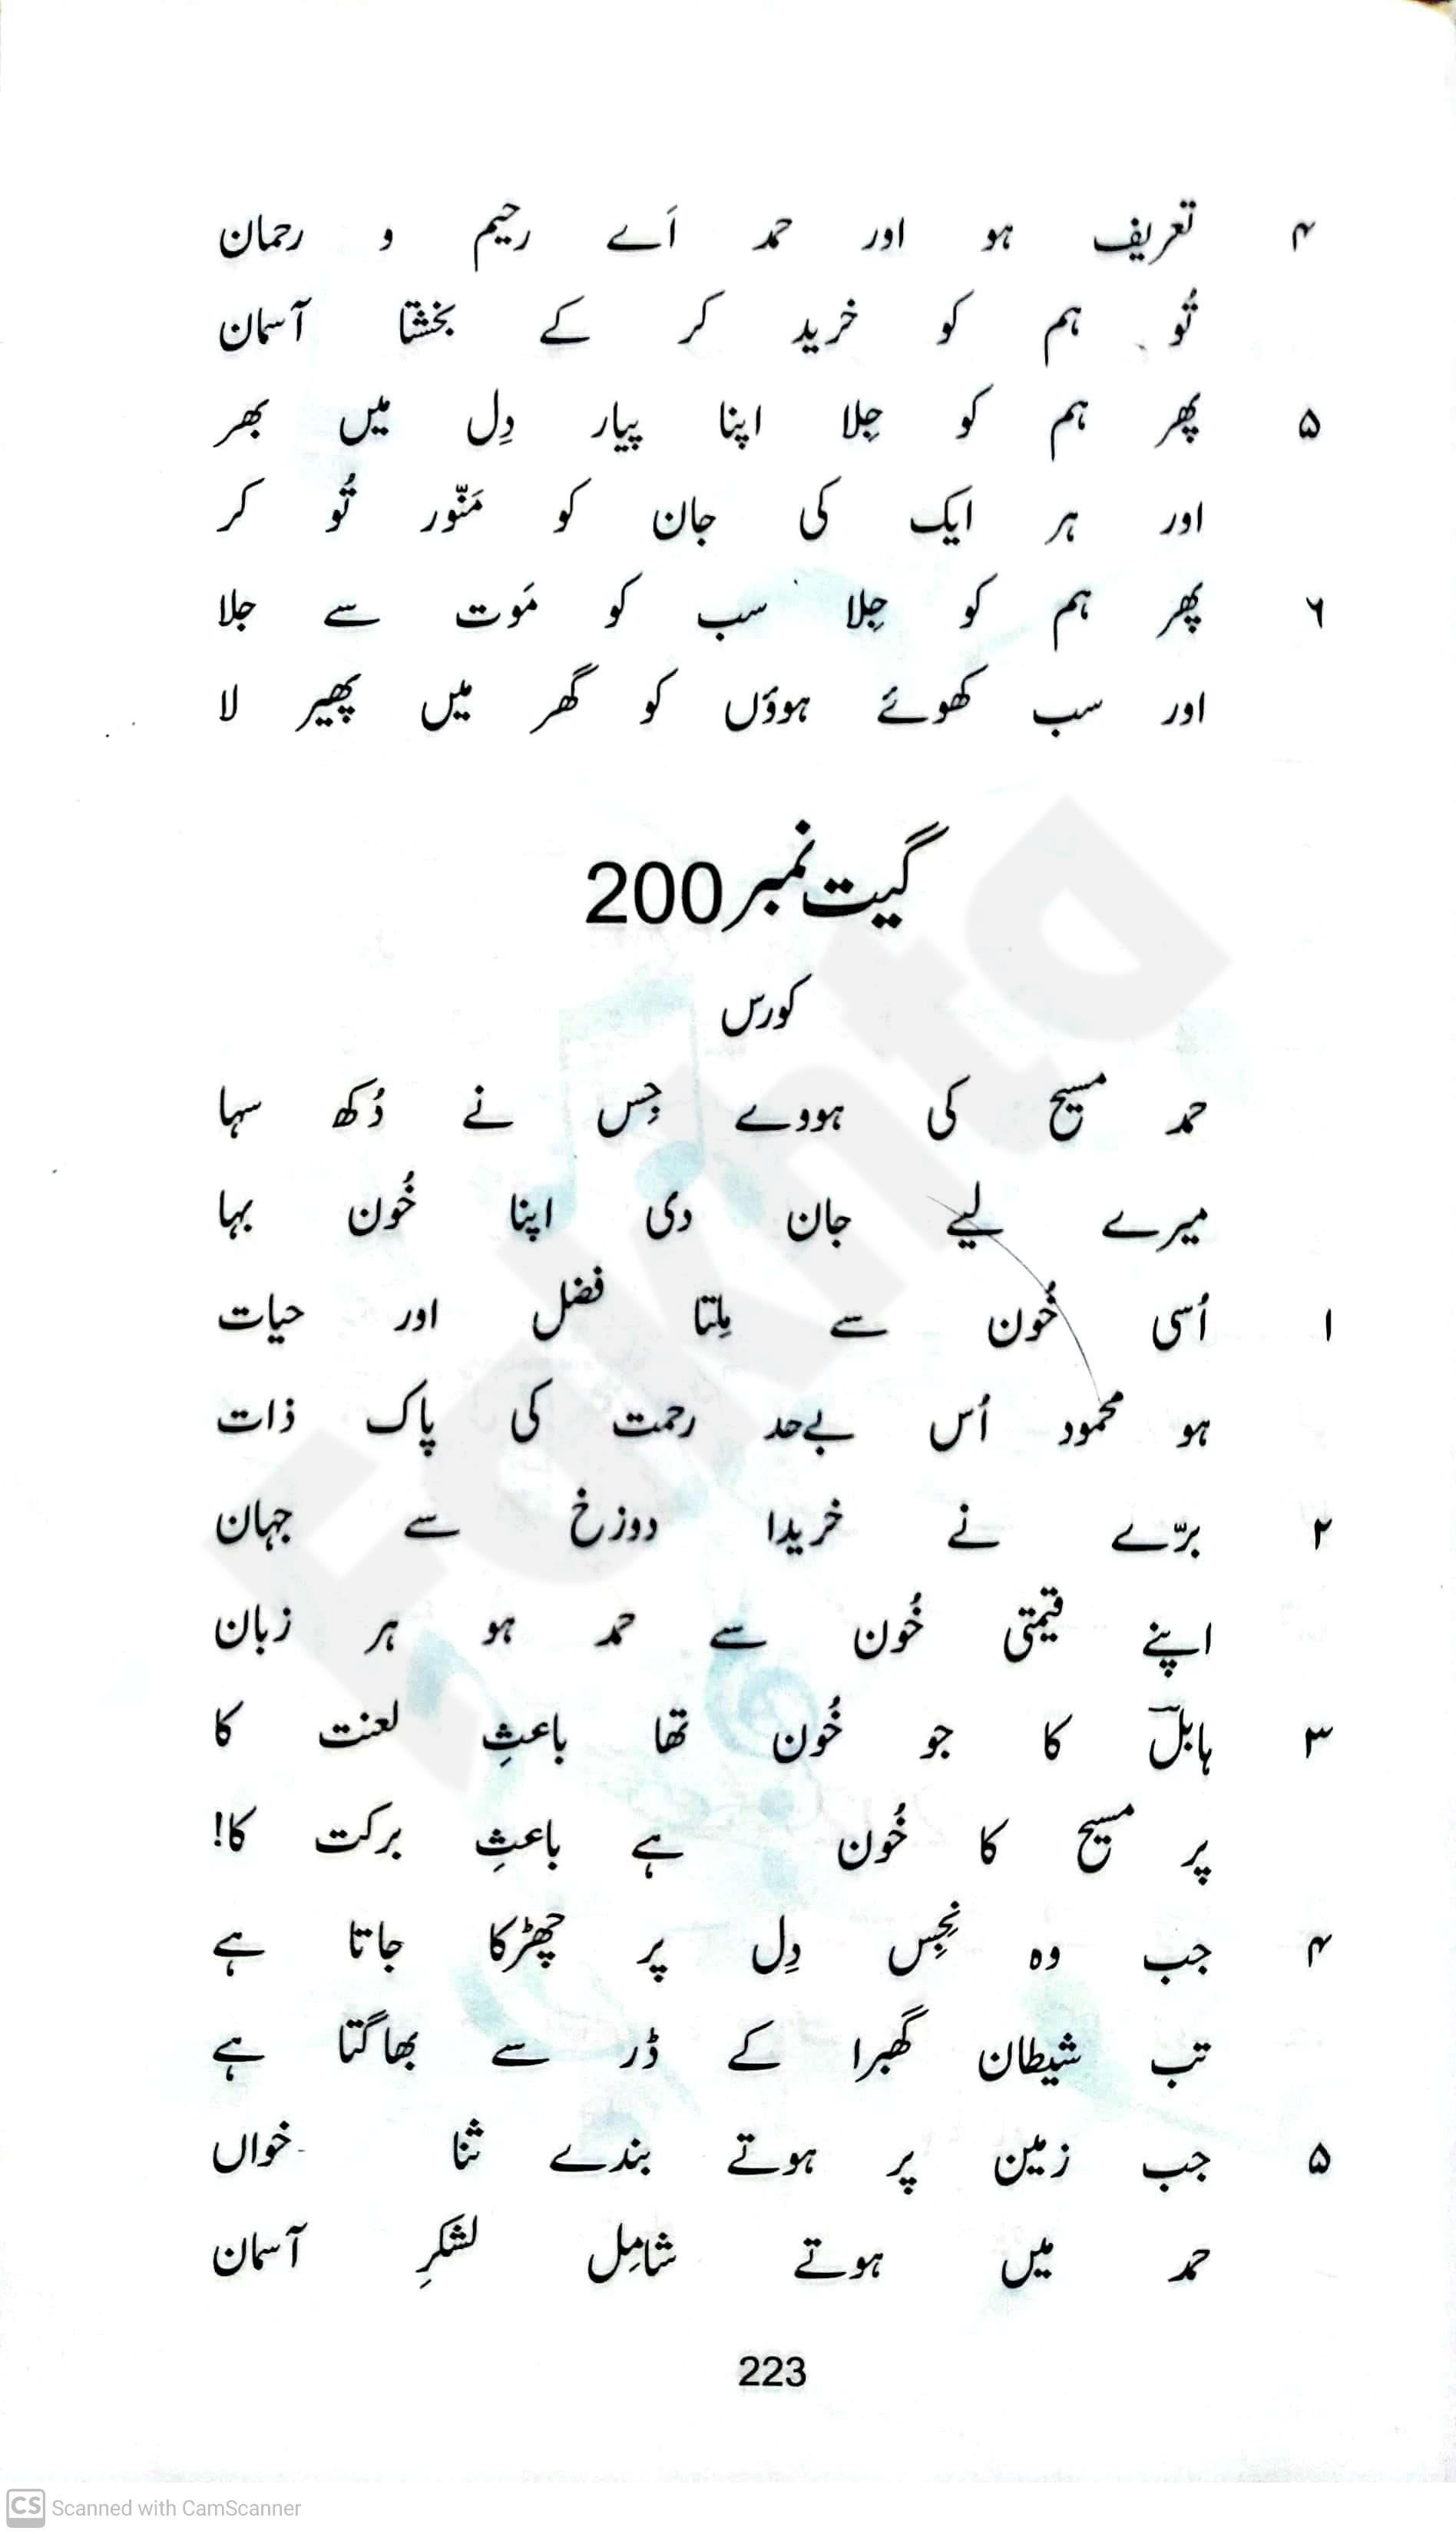 ۴ تعریف ہو اور حمد اَے رحیم و رحمان
تُو ہم کو خرید کر کے بخشتا آسمان
۵ پھر ہم کو جِلا اپنا پیار دِل میں بھر
اور ہر ایک کی جان کو مَنّور تُو کر
۶ پھر ہم کو جِلا سب کو مَوت سے جلا
اور سب کھوئے ہوؤں کو گھر میں پھیر لا
گیت نمبر 200
کورس
حمد مسیح کی ہووے جِس نے دُکھ سہا
میرے لیے جان دی اپنا خُون بہا
۱ اُسی خُون سے مِلتا فضل اور حیات
ہو محمود اُس بےحد رحمت کی پاک ذات
۲ برّے نے خریدا دوزخ سے جہان
اپنے قیمتی خُون سے حمد ہو ہر زبان
۳ ہابلؔ کا جو خُون تھا باعثِ لعنت کا
پر مسیح کا خُون ہے باعثِ برکت کا!
۴ جب وہ نِجِس دِل پر چھڑکا جاتا ہے
تب شیطان گھبرا کے ڈر سے بھاگتا ہے
۵ جب زمین پر ہوتے بندے ثنا خواں
حمد میں ہوتے شامِل لشکرِ آسمان
223
Fakhta
CS Scanned with CamScanner